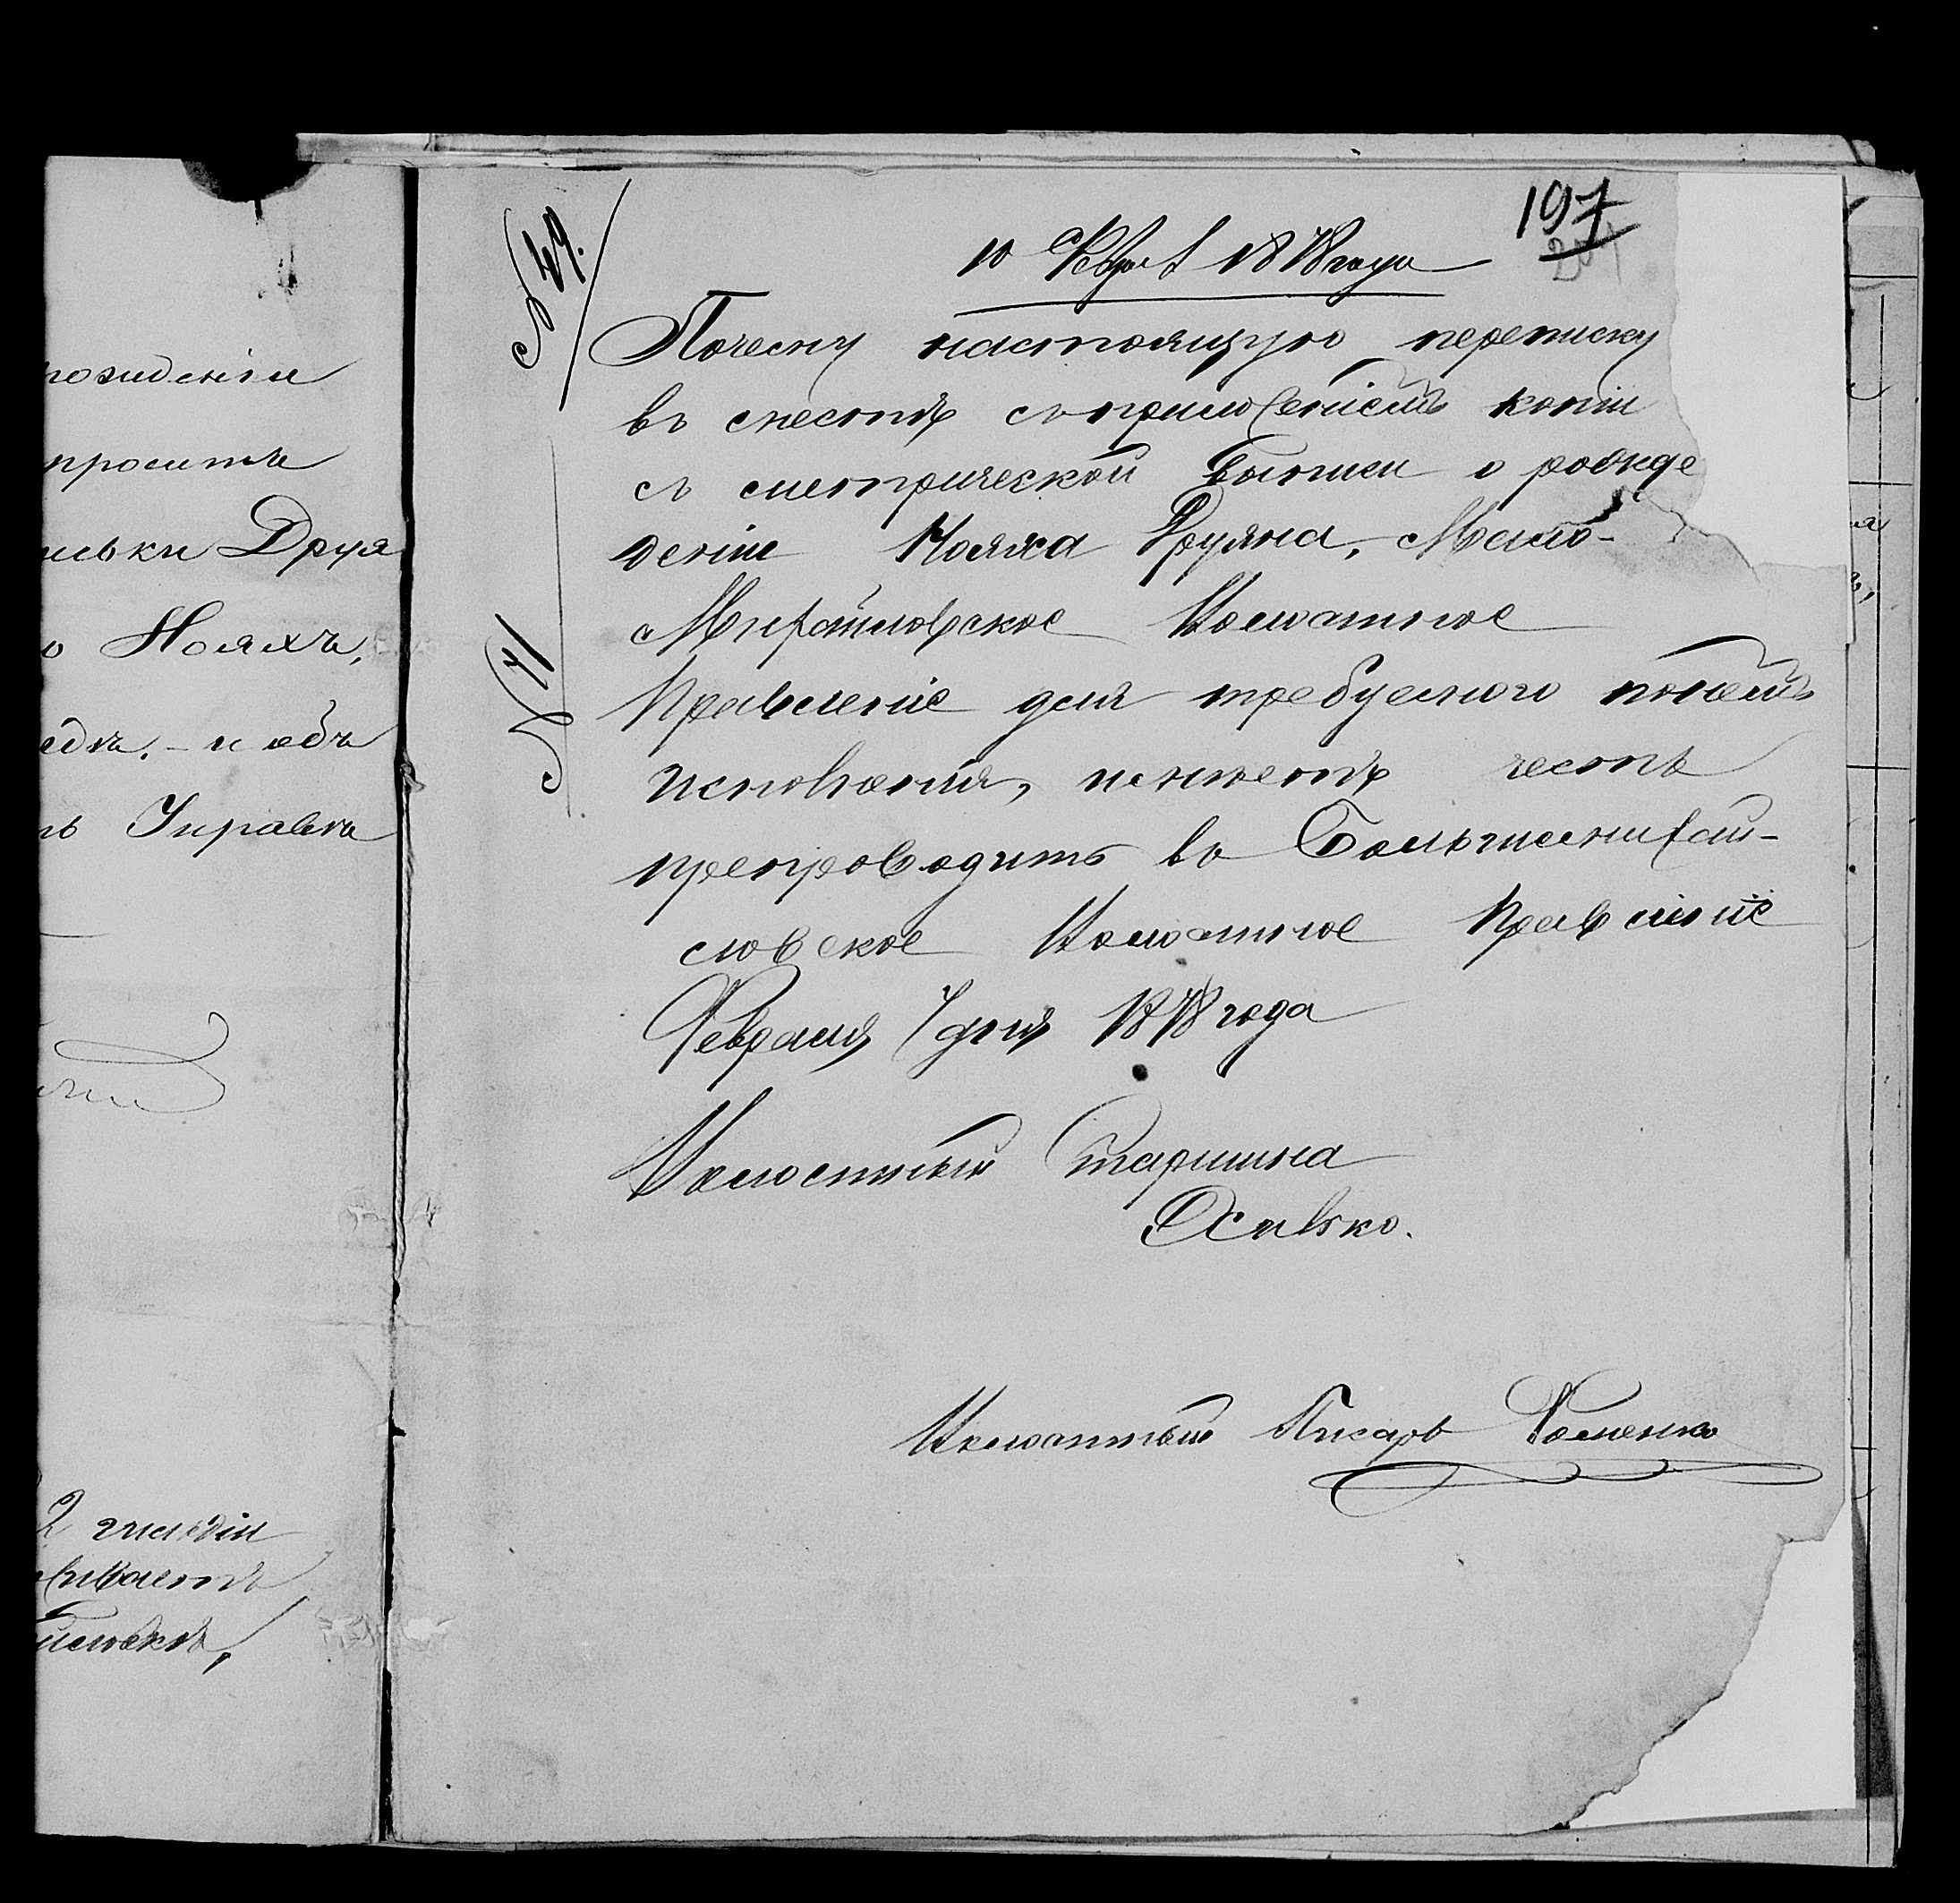 рожденіи
проситъ
иськи Друя
о Нояхъ,
едъ. - и объ
ть Управы
2 гильдіи
N 49.
197
10 Февр. 1878 года
Почему настоящую переписку
въ месте съ приложеніемъ копіи
съ метрической выписи о рожде
деніи Нояха Друяна, Мало-
Михайловское Волостное
Правленіе для требуемого
исполненія, имеетъ честь
препроводить въ Больше Михай-
ловское Волостное Правленіе
Февраля 7 дня 1878 года
N 71
Волостный Старшина
Осивко.
Волостный Писарь Хоменко